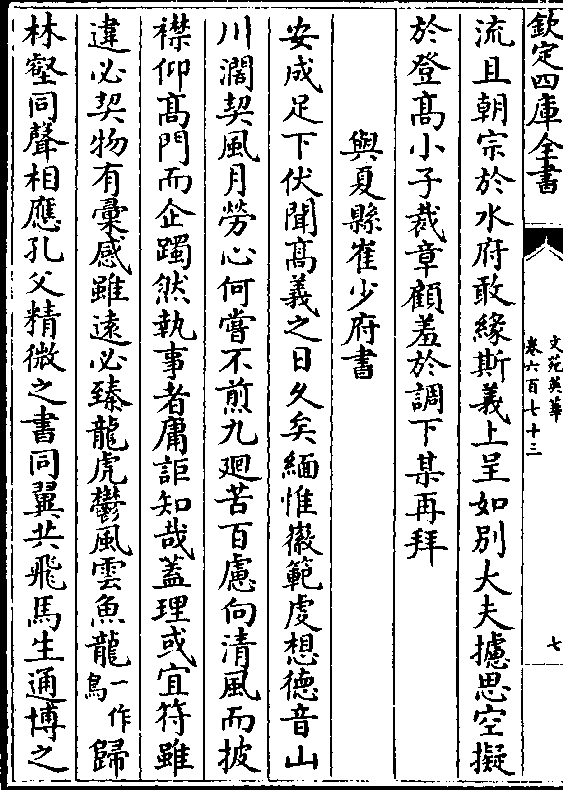 欽定四庫全書
文苑英華
卷六百七十三
七
流且朝宗於水府敢緣斯義上呈如別大夫攄思空擬
於登高小子裁章顧羞於調下某再拜
與夏縣崔少府書
安成足下伏聞高義之日久矣緬惟徽範虔想德音山
川濶契風月勞心何嘗不煎九廻苦百慮向清風而披
襟仰髙門而企躅然執事者庸詎知哉蓋理或宜符雖
違必契物有彙感雖遠必臻龍虎鬱風雲魚龍一作鳥歸
林壑同聲相應孔父精微之書同翼共飛馬生通博之